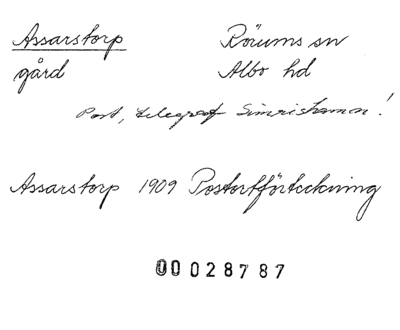 Assarstorp Rörums sn
gård Albo hd
Post, telegraf Simrishamn!
Assarstorp 1909 Postortförteckning
00028787